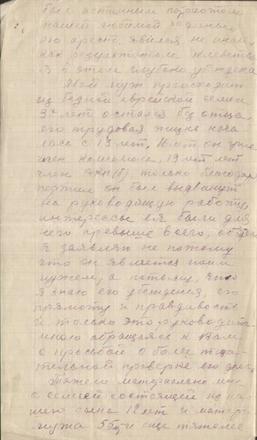 был истинным патриотом
нашей любимой родины
его арест явился не иначе
как результатом клеветы
Я в этом глубоко убеждена
Мой муж происходит
из бедной еврейской семьи
3х лет остался без отца,
его трудовая жизнь нача
лась с 13 лет, 16 лет он уже
член комсомола, 19 лет
член ВКП(б) только благодаря
партии он был выдвинут
на руководящую работу,
интересы её были для
него превыше всего, об этом
я заявляю не потому
что он является моим
мужем, а потому, что
я знаю его убеждения, его
прямоту и правдивость
и только это руководит
мною обращаясь к Вам
с просьбой о более тща-
тельной проверке его дела.
Тяжело материально мне
с семьей состоящей из на
шего сына 12 лет и матери
мужа и еще тяжелее